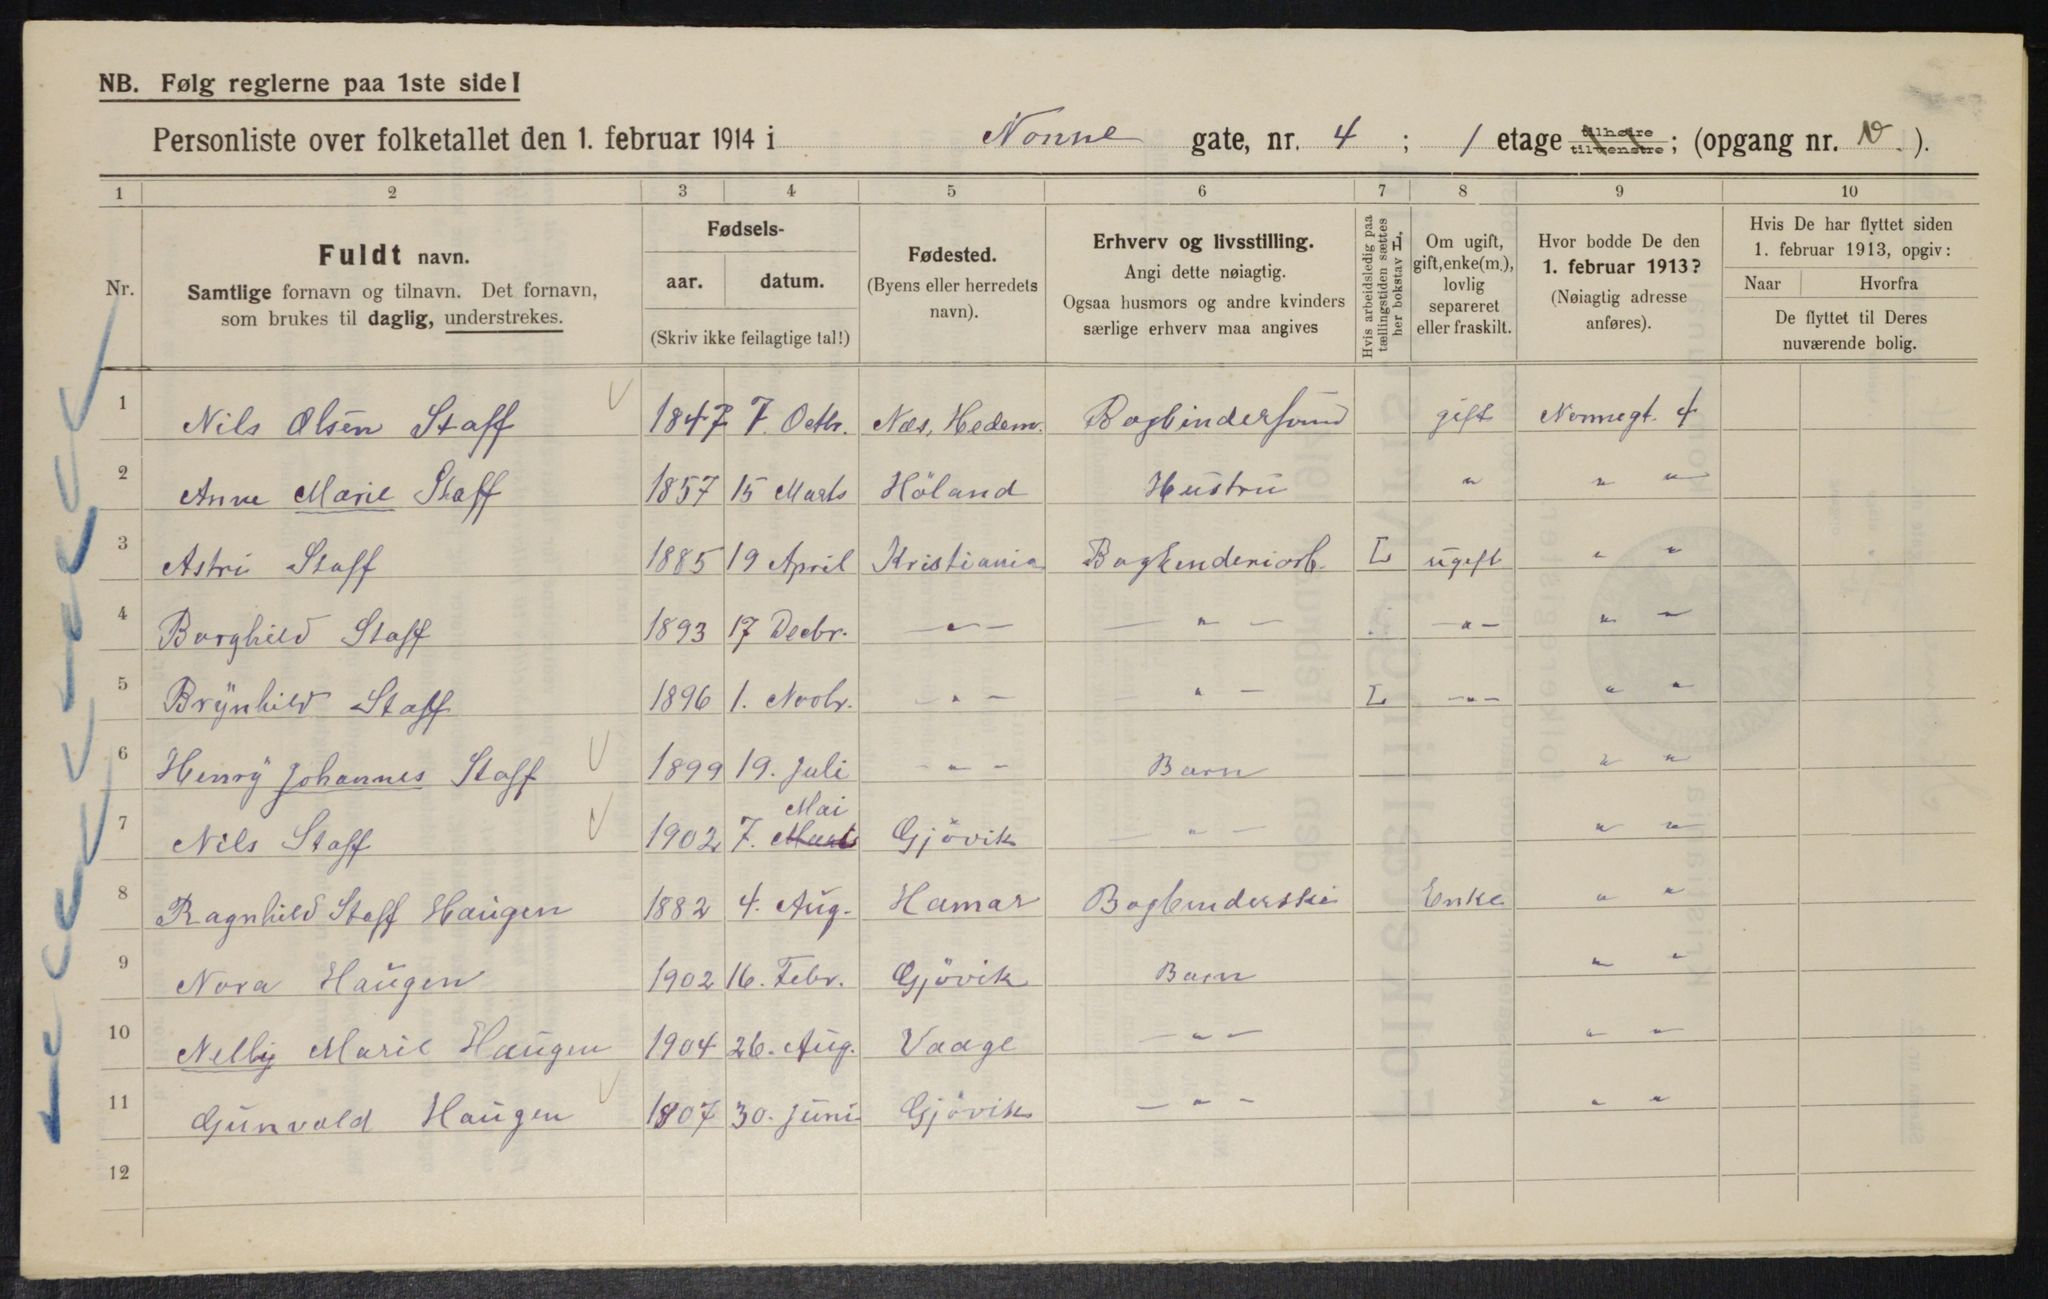 NB. Følg reglerne paa 1ste side!
Personliste over folketallet den 1. februar 1914 i Nonne gate, nr. 4 ; 1 etage tilhøire tilvenstre ; (opgang nr. v. ).
1 2 3 4 5 6 7 8 9 10
Nr.
Fuldt navn.
Samtlige fornavn og tilnavn. Det fornavn,
som brukes til daglig, understrekes.
Fødsels-
aar. datum.
(Skriv ikke feilagtige tal!)
Fødested.
(Byens eller herredets
navn).
Erhverv og livsstilling.
Angi dette nøiagtig.
Ogsaa husmors og andre kvinders
særlige erhverv maa angives
Hvis arbeidsledig paa
tællingstiden sættes
her bokstav L.
Om ugift,
gift, enke(m.),
lovlig
separeret
eller fraskilt.
Hvor bodde De den
1. februar 1913?
(Nøiagtig adresse
anføres).
Hvis De har flyttet siden
1. februar 1913, opgiv:
Naar Hvorfra
De flyttet til Deres
nuværende bolig.
1 Nils Olsen Staff 1847 7. Octbr. Næs, Hedem. Bogbindersvend gift Nonnegt. 4
2 Anne Marie Staff 1857 15 Marts Höland Hustru " " "
3 Astri Staff 1885 19 April Kristiania Bogbinderiarb. L ugift " "
4 Borghild Staff 1893 17 Decbr. — " — — " — — " — " "
5 Brynhild Staff 1896 1. Novbr. — " — — " — L — " — " "
6 Henry Johannes Staff 1899 19. Juli — " — Barn " "
Mai
7 Nils Staff 1902 7. Marts Gjövik — " — " "
8 Ragnhild Staff Haugen 1882 4. Aug. Hamar Bogbinderske Enke " "
9 Nora Haugen 1902 16. Febr. Gjövik Barn " "
10 Nelly Marie Haugen 1904 26. Aug. Vaage — " — " "
11 Gunvald Haugen 1907 30. Juni Gjövik — " — " "
12